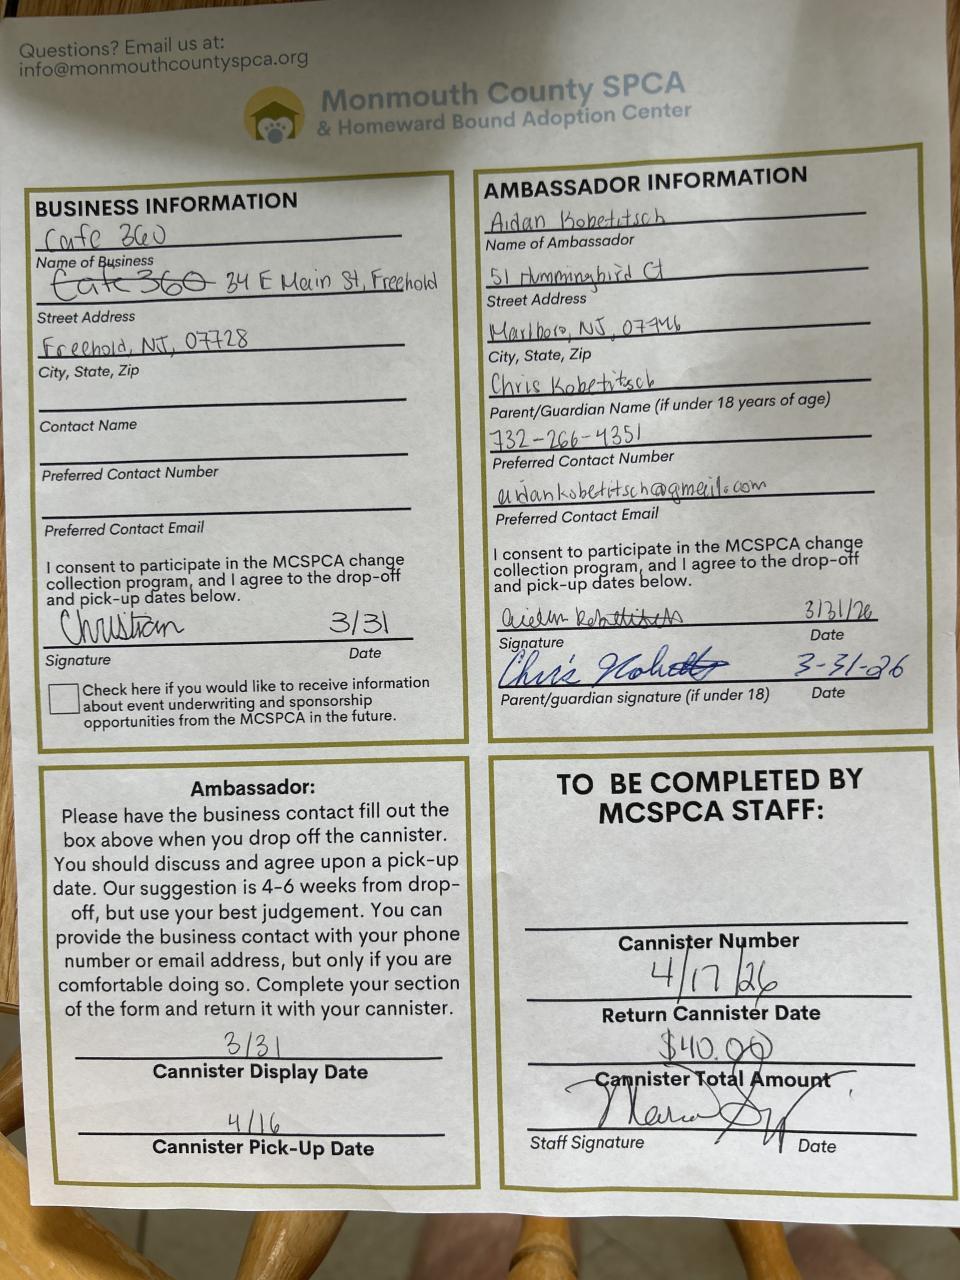 Questions? Email us at:
info@monmouthcountyspca.org
Monmouth County SPCA
& Homeward Bound Adoption Center
BUSINESS INFORMATION
Cafe 360
Name of Business
Cafe 360 34 E Main St, Freehold
Street Address
Freehold, NJ, 07728
City, State, Zip
Contact Name
Preferred Contact Number
Preferred Contact Email
I consent to participate in the MCSPCA change
collection program, and I agree to the drop-off
and pick-up dates below.
Christian 3/31
Signature Date
Check here if you would like to receive information
about event underwriting and sponsorship
opportunities from the MCSPCA in the future.
AMBASSADOR INFORMATION
Aidan Kobetitsch
Name of Ambassador
51 Hummingbird Ct
Street Address
Marlboro, NJ, 07746
City, State, Zip
Chris Kobetitsch
Parent/Guardian Name (if under 18 years of age)
732-266-4351
Preferred Contact Number
aidankobetitsch@gmail.com
Preferred Contact Email
I consent to participate in the MCSPCA change
collection program, and I agree to the drop-off
and pick-up dates below.
Aidan Kobetitsch 3/31/26
Signature Date
Chris 3-31-26
Parent/guardian signature (if under 18) Date
Ambassador:
Please have the business contact fill out the
box above when you drop off the cannister.
You should discuss and agree upon a pick-up
date. Our suggestion is 4-6 weeks from drop-
off, but use your best judgement. You can
provide the business contact with your phone
number or email address, but only if you are
comfortable doing so. Complete your section
of the form and return it with your cannister.
3/31
Cannister Display Date
4/16
Cannister Pick-Up Date
TO BE COMPLETED BY
MCSPCA STAFF:
Cannister Number
4/17/26
Return Cannister Date
$40.00
Cannister Total Amount
Staff Signature Date